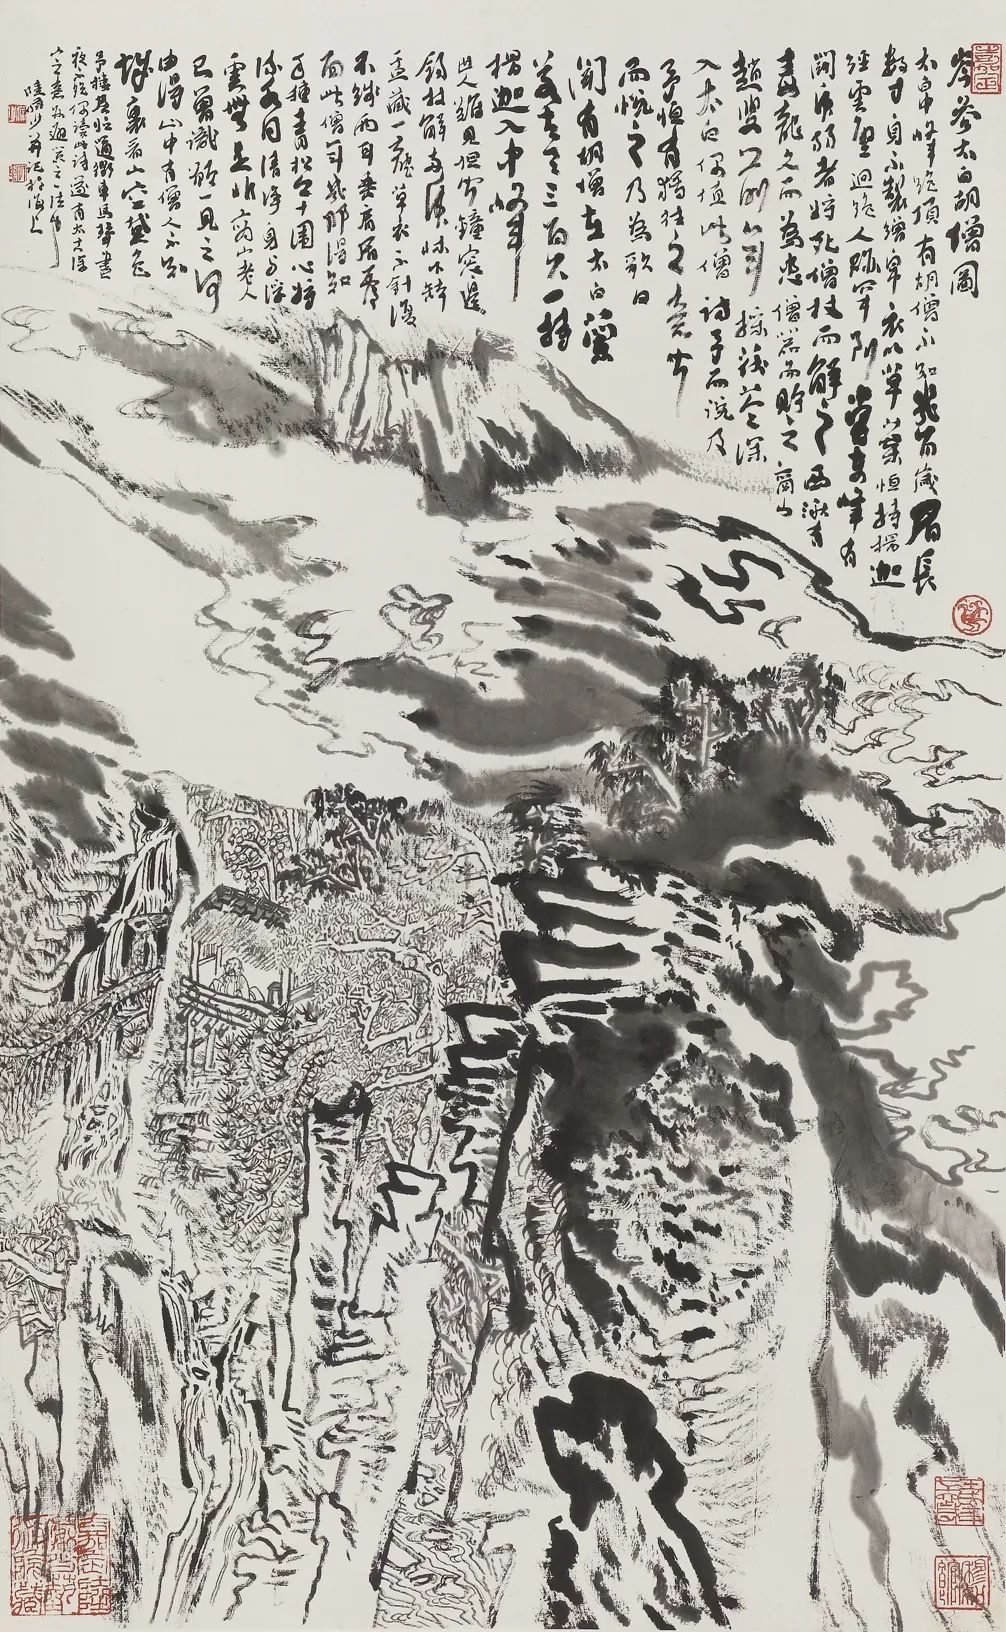 岑參太白胡僧圖
太白中峰絕頂有胡僧不知幾百歲眉長
數寸身不製繒帛衣以草葉恒持楞迦
經雲壁迥絕人跡罕到嘗東峰有
鬬虎弱者將死僧杖而解之西湫有
毒龍久而為患僧器而貯之商山
趙叟前年採茯苓深
入太白偶值此僧訪予而說及
予恒有獨往之意聞
而悅之乃為歌曰
聞有胡僧在太白蘭
若去天三百尺一持
楞迦入中峰
世人難見但聞鐘窗邊
錫杖解兩虎牀下鉢
盂藏一龍草衣不針復
不線兩耳垂肩眉覆
面此僧年幾那得知
手種青松今十圍心將
流水同清淨身與浮
雲無是非商山老人
已曾識願一見之何
由得山中有僧人不知
城裏看山空黛色
予樓居臨通衢車馬聲晝
夜偶讀此詩遂有
之意為寫之
陸儼少并記於滬上
嘉定